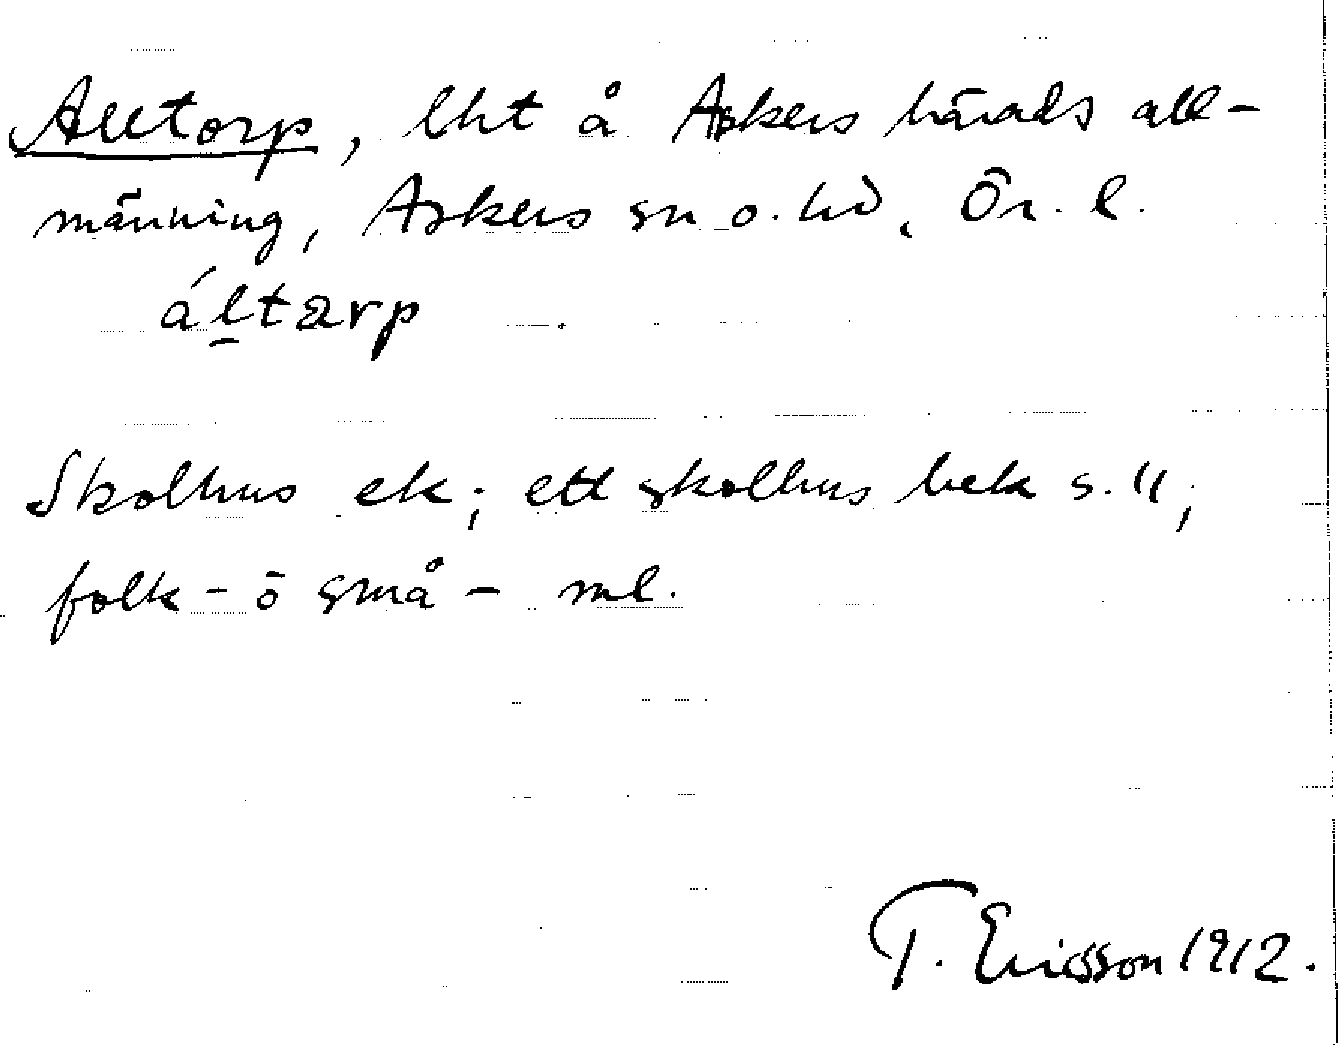 Alltorp, lht å Askers härads all-
männing, Askers sn o. hd, Ör. l.
áltarp
Skolhus ek; ett skolhus bek s. 11;
folk- ō små- ml.
T. Ericsson 1912.